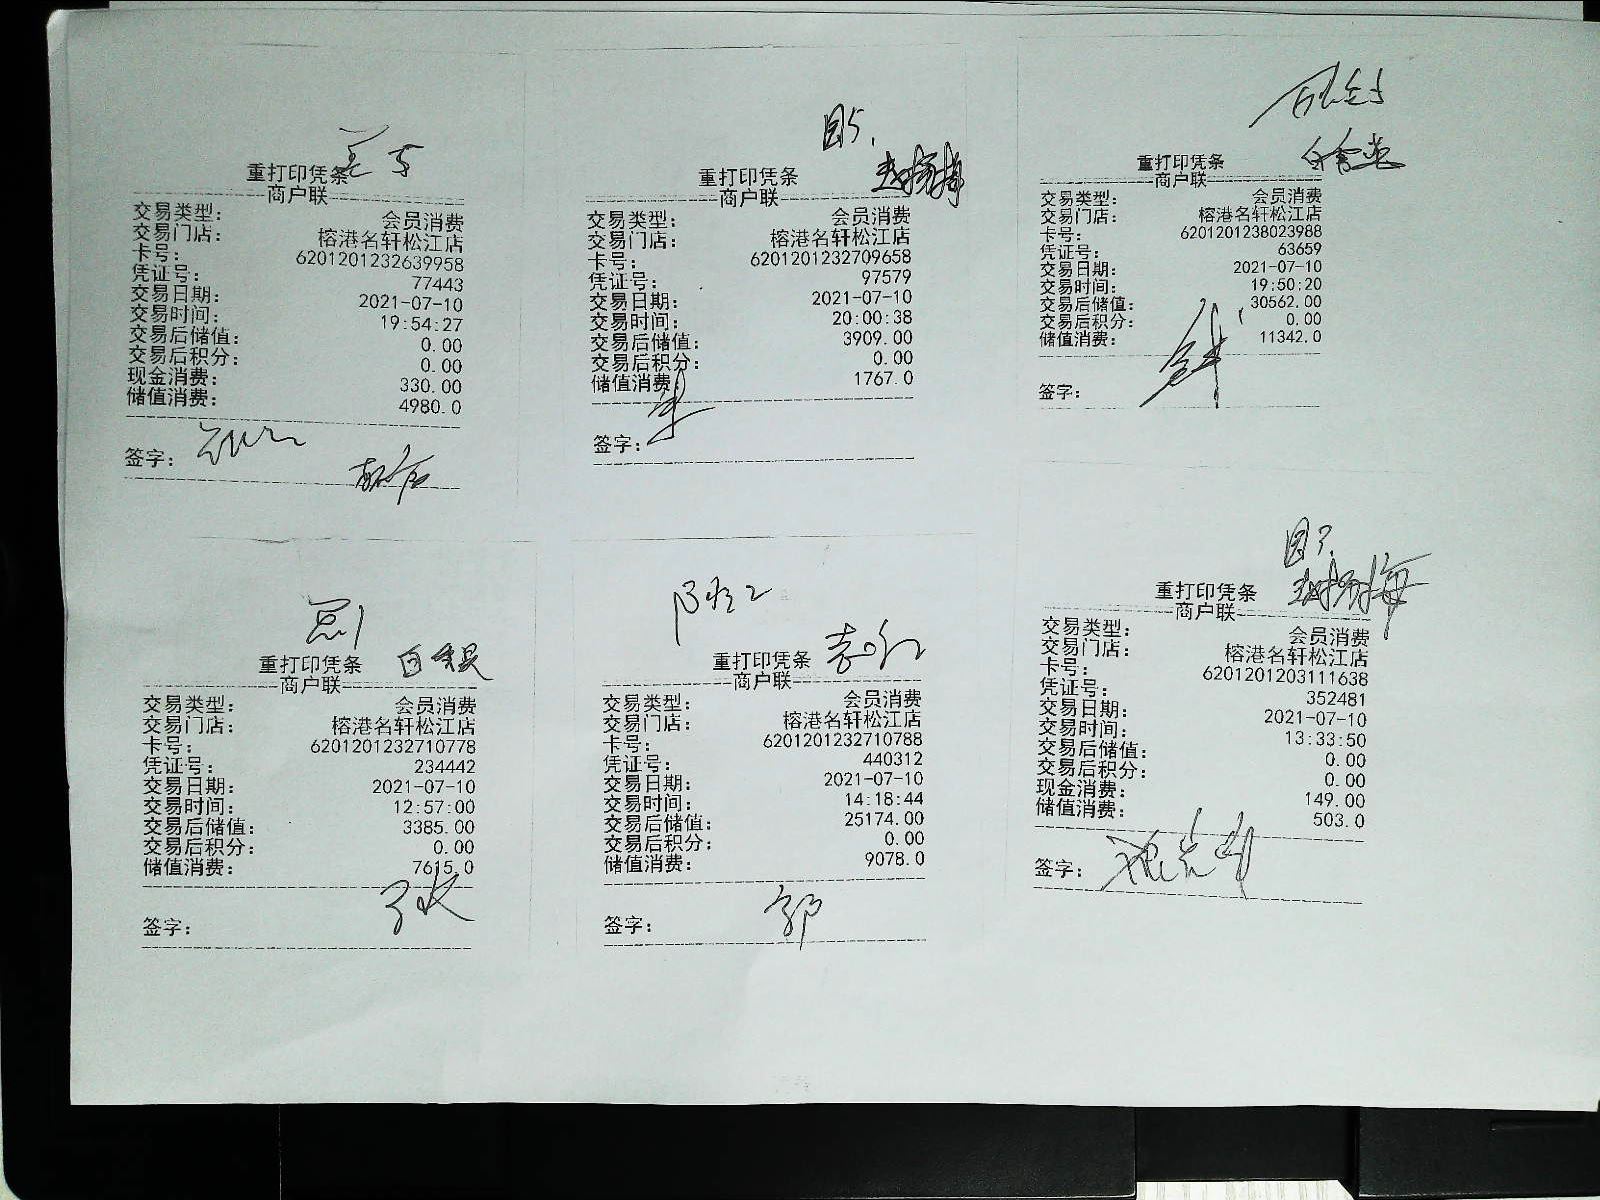 重打印凭条
商户联
交易类型: 会员消费
交易门店: 榕港名轩松江店
卡号: 6201201232639958
凭证号: 77443
交易日期: 2021-07-10
交易时间: 19:54:27
交易后储值: 0.00
交易后积分: 0.00
现金消费: 330.00
储值消费: 4980.0
签字:
重打印凭条
商户联
交易类型: 会员消费
交易门店: 榕港名轩松江店
卡号: 6201201232709658
凭证号: 97579
交易日期: 2021-07-10
交易时间: 20:00:38
交易后储值: 3909.00
交易后积分: 0.00
储值消费: 1767.0
签字:
重打印凭条
商户联
交易类型: 会员消费
交易门店: 榕港名轩松江店
卡号: 6201201238023988
凭证号: 63659
交易日期: 2021-07-10
交易时间: 19:50:20
交易后储值: 30562.00
交易后积分: 0.00
储值消费: 11342.0
签字:
重打印凭条
商户联
交易类型: 会员消费
交易门店: 榕港名轩松江店
卡号: 6201201232710778
凭证号: 234442
交易日期: 2021-07-10
交易时间: 12:57:00
交易后储值: 3385.00
交易后积分: 0.00
储值消费: 7615.0
签字:
重打印凭条
商户联
交易类型: 会员消费
交易门店: 榕港名轩松江店
卡号: 6201201232710788
凭证号: 440312
交易日期: 2021-07-10
交易时间: 14:18:44
交易后储值: 25174.00
交易后积分: 0.00
储值消费: 9078.0
签字: 郭
重打印凭条
商户联
交易类型: 会员消费
交易门店: 榕港名轩松江店
卡号: 6201201203111638
凭证号: 352481
交易日期: 2021-07-10
交易时间: 13:33:50
交易后储值: 0.00
交易后积分: 0.00
现金消费: 149.00
储值消费: 503.0
签字: